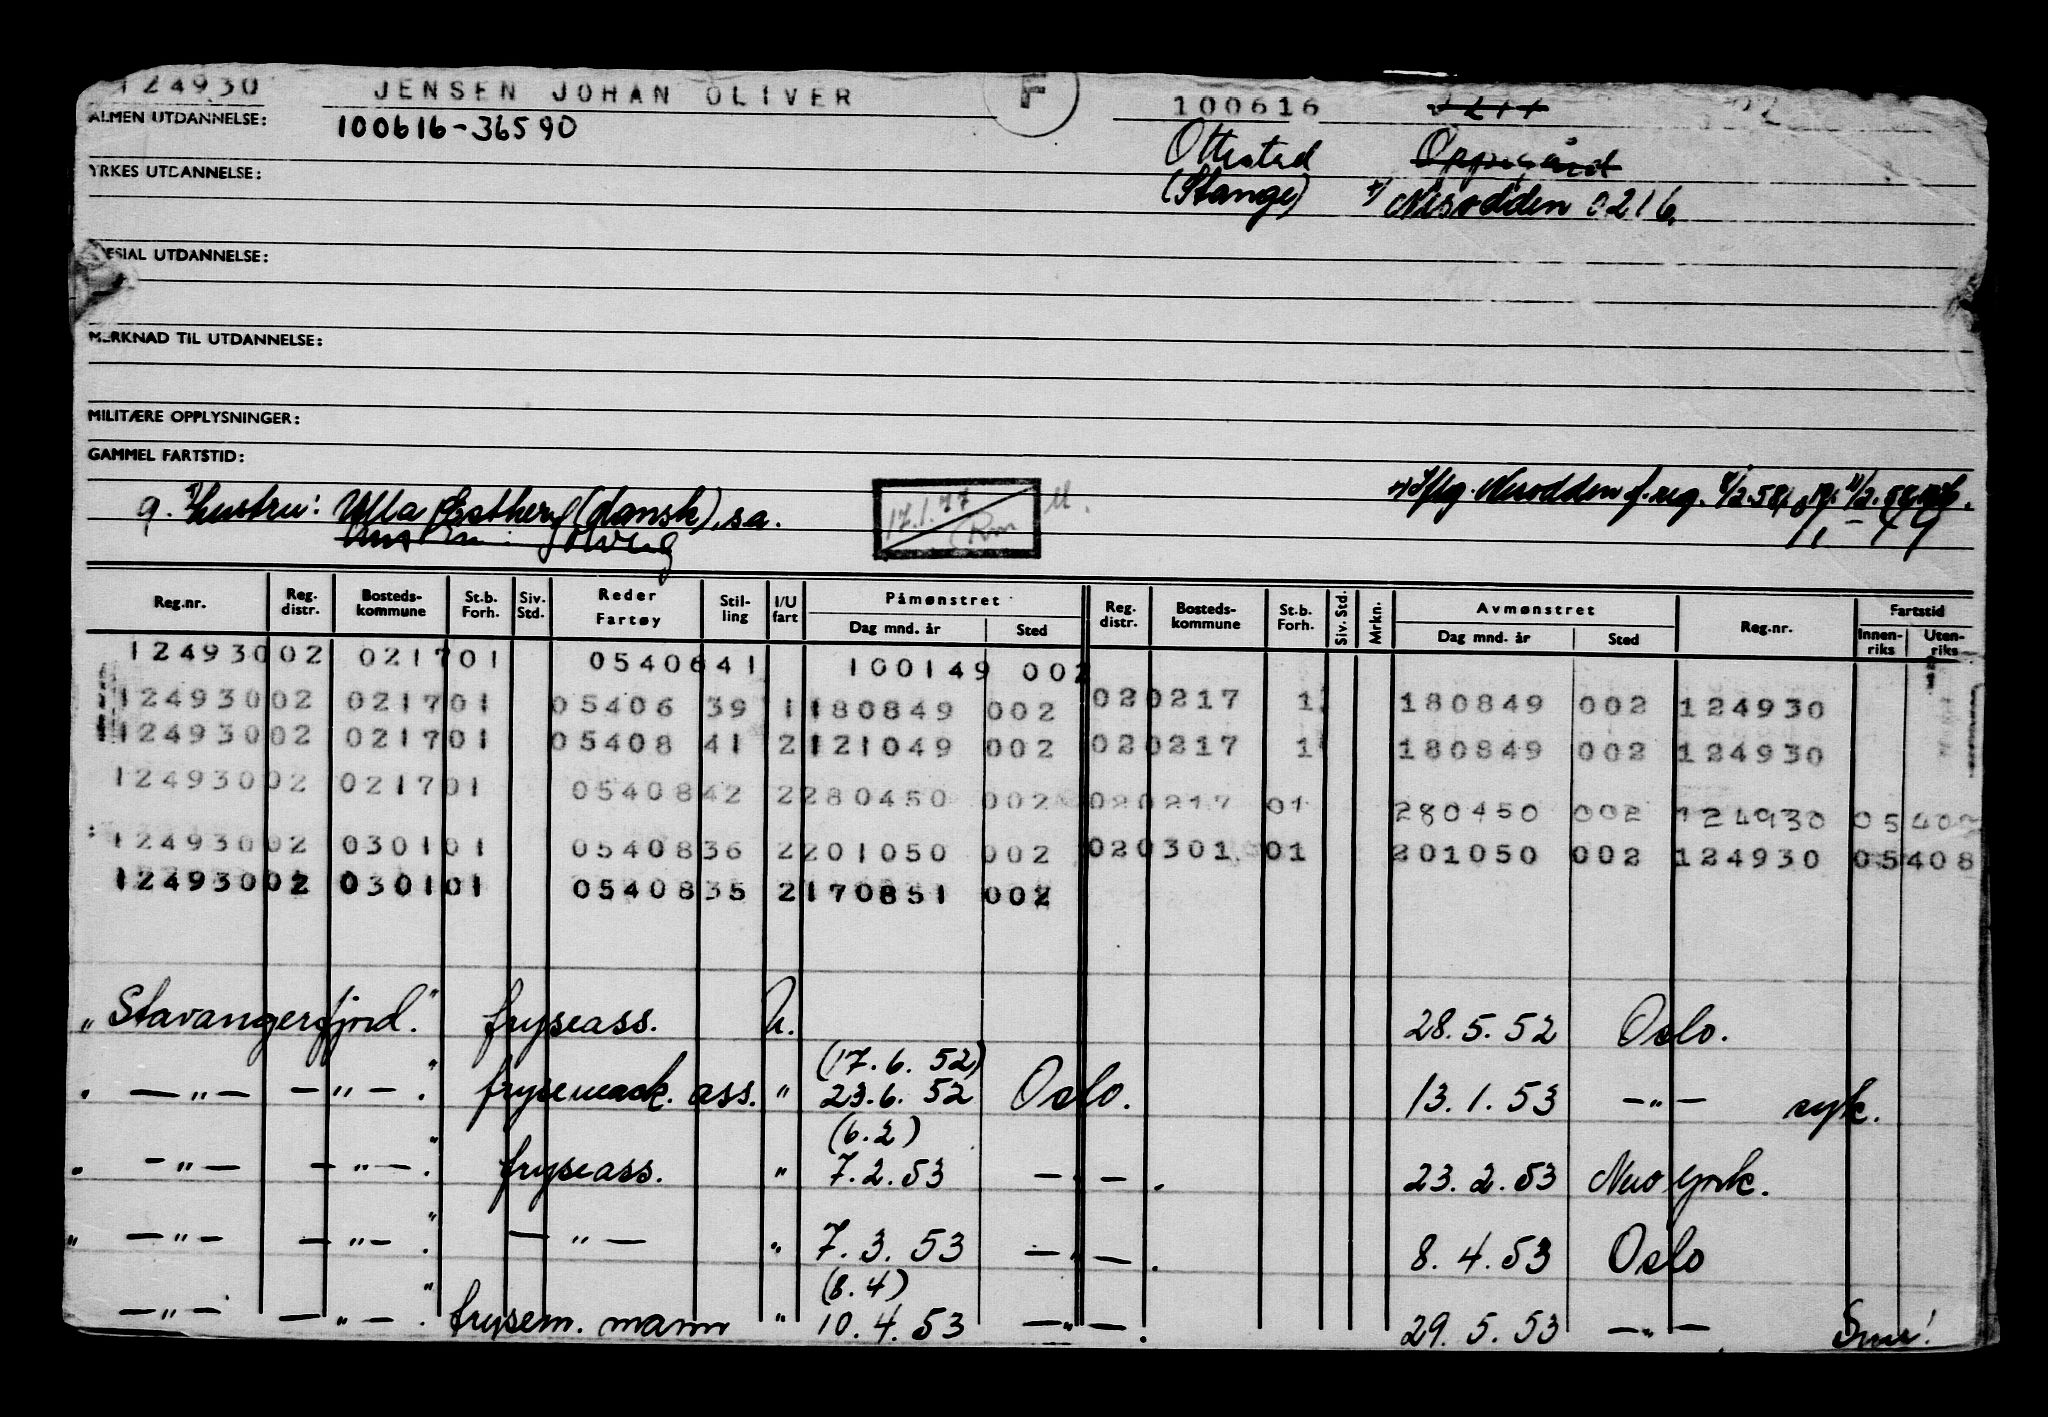 124930 JENSEN JOHAN OLIVER F 100616
ALMEN UTDANNELSE: 100616-36590 Ottestad Oppegård
YRKES UTDANNELSE: (Stange) Nesodden 0216.
SPESIAL UTDANNELSE:
MERKNAD TIL UTDANNELSE:
MILITÆRE OPPLYSNINGER:
GAMMEL FARTSTID:
g. Hustru: Ulla Esther (dansk), s.a. 17.1.77 Nesodden f.reg.
Solveig
Reg.nr. Reg. distr. Bosteds- kommune St.b. Forh. Siv. Std. Reder Fartøy Stil- ling I/U fart Påmønstret Reg. distr. Bosteds- kommune St.b. Forh. Siv. Std. Mrkn. Avmønstret Reg.nr. Fartstid
Dag mnd. år Sted Dag mnd. år Sted Innen- riks Uten- riks
124930 02 0217 01 05406 41 100149 002
124930 02 0217 01 05406 39 1 180849 002 02 0217 1 180849 002 124930
124930 02 0217 01 05408 41 2 121049 002 02 0217 1 180849 002 124930
124930 02 0217 01 05408 42 2 280450 002 02 0217 01 280450 002 124930 05 408
124930 02 0301 01 05408 36 2 201050 002 02 0301 01 201050 002 124930 05 408
124930 02 0301 01 05408 35 2 170851 002
"Stavangerfjord." fryseass. U. 28.5.52 Oslo.
(17.6.52)
" —"— —"— ." frysemask. ass. " 23.6.52 Oslo. 13.1.53 —"— syk.
(6.2)
" —"— —"— ." fryseass. " 7.2.53 —"— . 23.2.53 New York.
" —"— —"— ." —"— " 7.3.53 —"— . 8.4.53 Oslo
(8.4)
—"— —"— ." frysem. mann " 10.4.53 —"— . 29.5.53 —"— Snu!